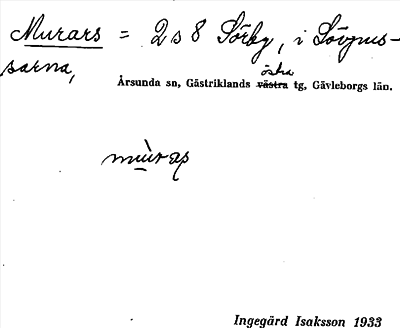 Murars = 2 s 8 Sörby, i
sarna,
östra
Årsunda sn, Gästriklands västra tg, Gävleborgs län.
Ingegärd Isaksson 1933